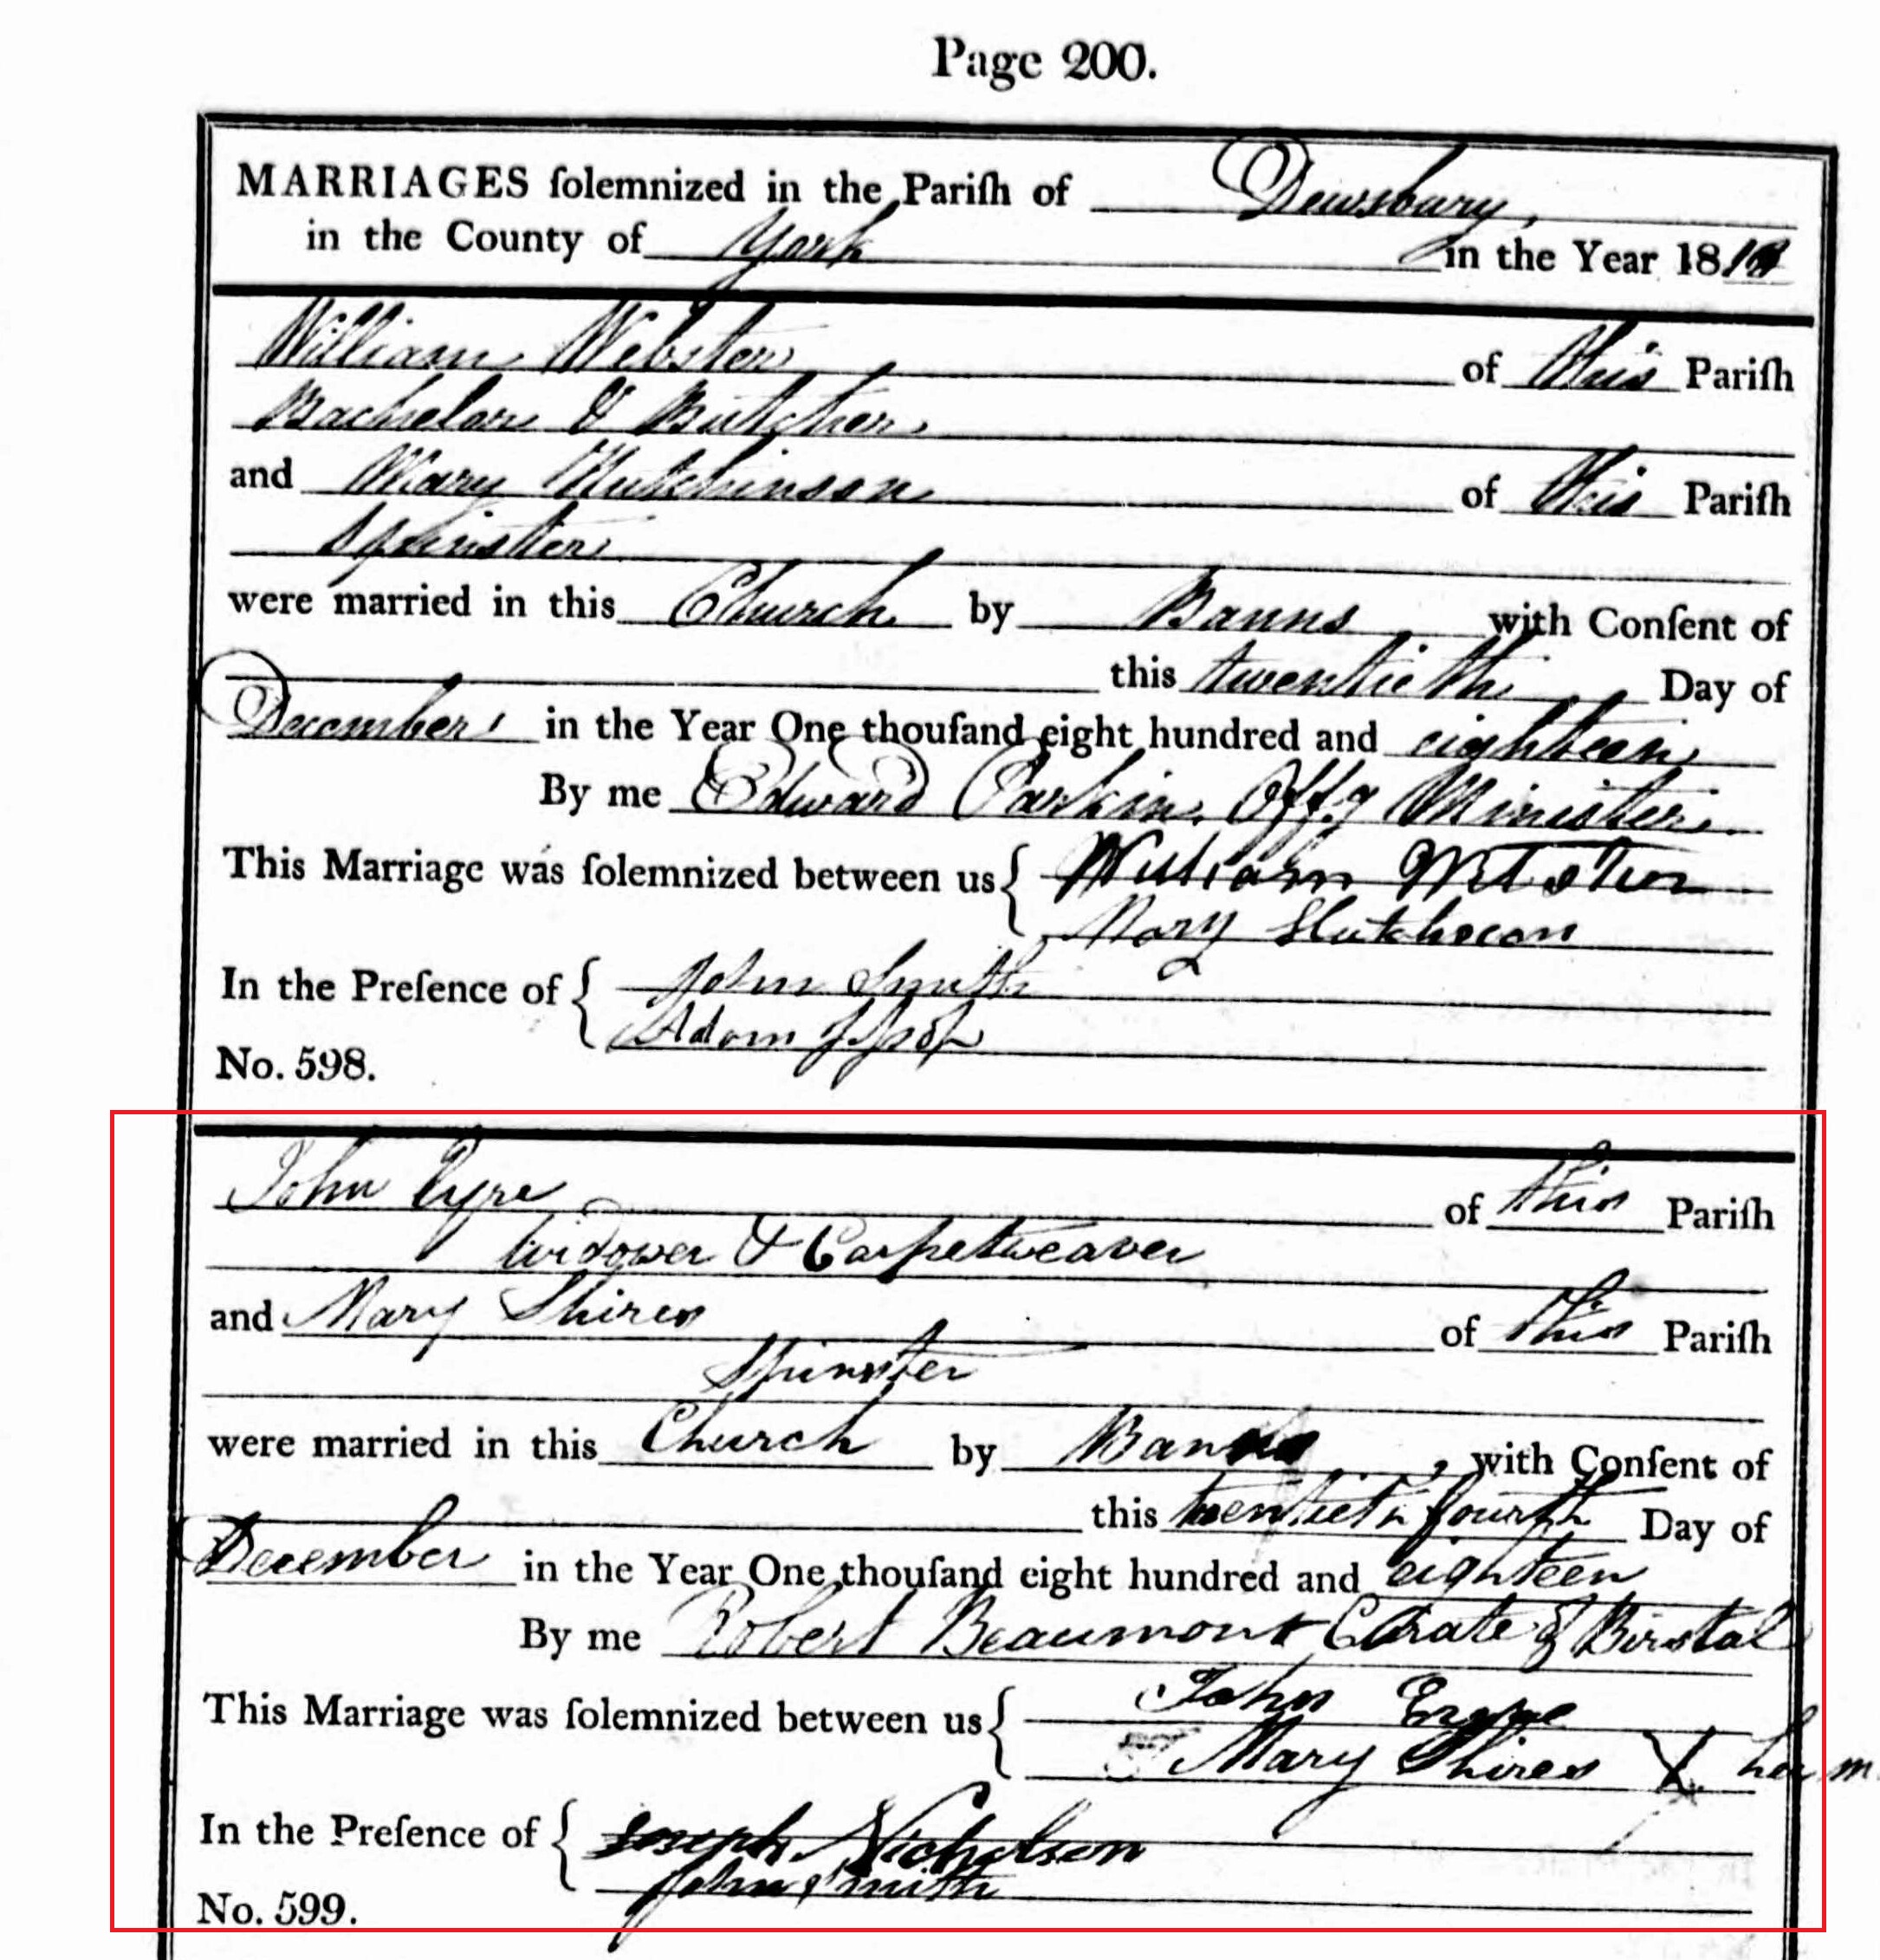 Page 200.
MARRIAGES ſolemnized in the Pariſh of Dewsbury,
in the County of York in the Year 1818
William Webster of this Pariſh
Bachelor & Butcher
and Mary Hutchinson of this Pariſh
Spinster
were married in this Church by Banns with Conſent of
this twentieth Day of
December in the Year One thouſand eight hundred and eighteen
By me Edward Parkin, Offg Minister
This Marriage was ſolemnized between us { William Webster
Mary
In the Preſence of { John Smith
Adam
No. 598.
John Eyre of this Pariſh
Widower & Carpetweaver
and Mary Shires of this Pariſh
Spinster
were married in this Church by Banns with Conſent of
this twentieth fourth Day of
December in the Year One thouſand eight hundred and eighteen
By me Robert Beaumont Curate of Birstal
This Marriage was ſolemnized between us { John
Mary Shires X her m
In the Preſence of { Joseph Nicholson
John Smith
No. 599.